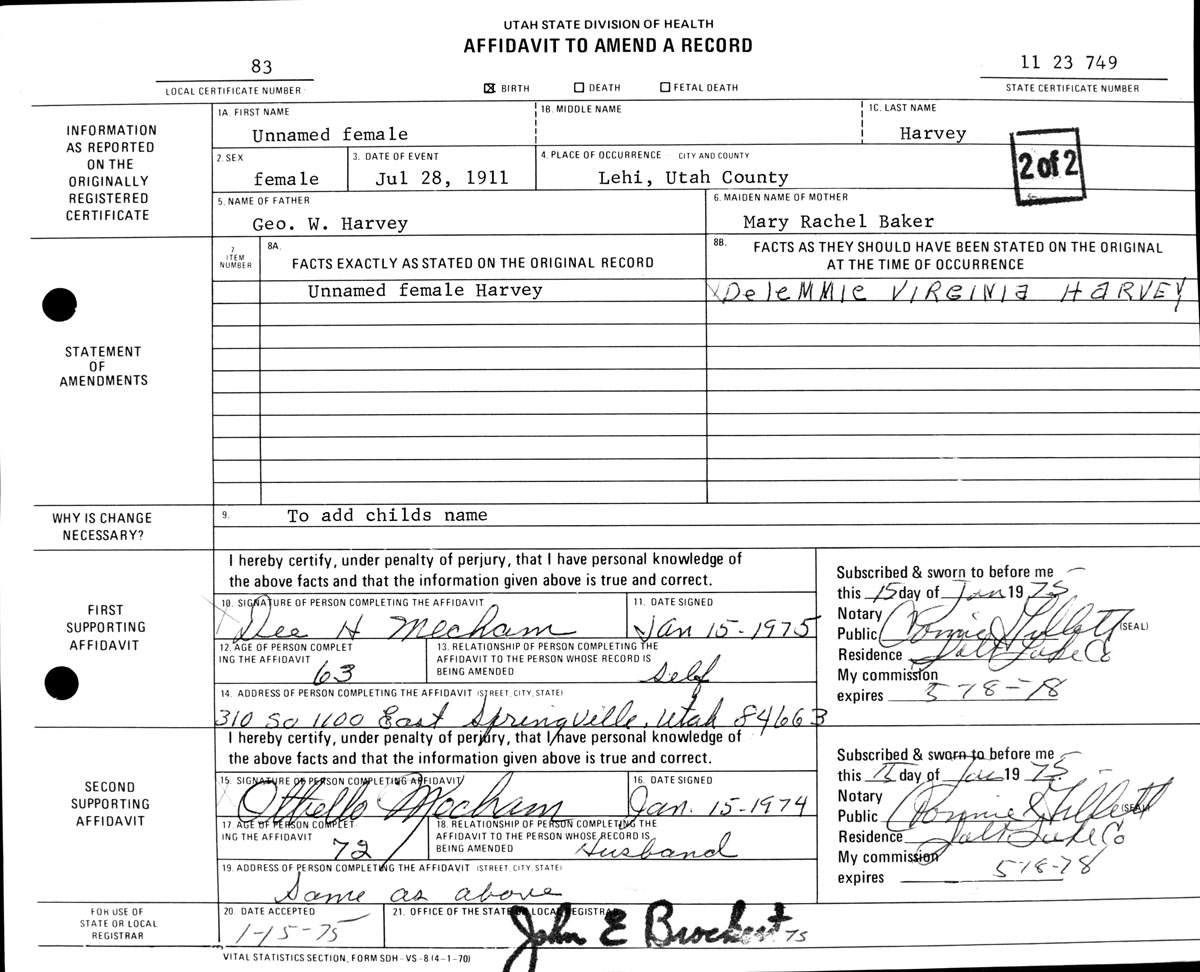 UTAH STATE DIVISION OF HEALTH
AFFIDAVIT TO AMEND A RECORD
83
LOCAL CERTIFICATE NUMBER
☒ BIRTH ☐ DEATH ☐ FETAL DEATH
11 23 749
STATE CERTIFICATE NUMBER
INFORMATION
AS REPORTED
ON THE
ORIGINALLY
REGISTERED
CERTIFICATE
1A. FIRST NAME
Unnamed female
1B. MIDDLE NAME
1C. LAST NAME
Harvey
2. SEX
female
3. DATE OF EVENT
Jul 28, 1911
4. PLACE OF OCCURRENCE CITY AND COUNTY
Lehi, Utah County
2 of 2
5. NAME OF FATHER
Geo. W. Harvey
6. MAIDEN NAME OF MOTHER
Mary Rachel Baker
STATEMENT
OF
AMENDMENTS
7
ITEM
NUMBER
8A.
FACTS EXACTLY AS STATED ON THE ORIGINAL RECORD
8B. FACTS AS THEY SHOULD HAVE BEEN STATED ON THE ORIGINAL
AT THE TIME OF OCCURRENCE
Unnamed female Harvey
X DeleMMIe VIRGINIa HaRVEY
WHY IS CHANGE
NECESSARY?
9. To add childs name
FIRST
SUPPORTING
AFFIDAVIT
I hereby certify, under penalty of perjury, that I have personal knowledge of
the above facts and that the information given above is true and correct.
10. SIGNATURE OF PERSON COMPLETING THE AFFIDAVIT
X Dee H Mecham
11. DATE SIGNED
Jan 15-1975
12. AGE OF PERSON COMPLET
ING THE AFFIDAVIT
63
13. RELATIONSHIP OF PERSON COMPLETING THE
AFFIDAVIT TO THE PERSON WHOSE RECORD IS
BEING AMENDED
Self
14. ADDRESS OF PERSON COMPLETING THE AFFIDAVIT (STREET, CITY, STATE)
310 So 1100 East Springville, Utah 84663
Subscribed & sworn to before me
this 15 day of Jan 19 75
Notary
Public Connie Gillett (SEAL)
Residence Salt Lake Co
My commission
expires 5-18-78
SECOND
SUPPORTING
AFFIDAVIT
I hereby certify, under penalty of perjury, that I have personal knowledge of
the above facts and that the information given above is true and correct.
15. SIGNATURE OF PERSON COMPLETING AFFIDAVIT
X Othello Mecham
16. DATE SIGNED
Jan. 15-1974
17. AGE OF PERSON COMPLET-
ING THE AFFIDAVIT
72
18. RELATIONSHIP OF PERSON COMPLETING THE
AFFIDAVIT TO THE PERSON WHOSE RECORD IS
BEING AMENDED
Husband
19. ADDRESS OF PERSON COMPLETING THE AFFIDAVIT (STREET, CITY, STATE)
Same as above
Subscribed & sworn to before me
this 15 day of Jan 19 75
Notary
Public Connie Gillett (SEAL)
Residence Salt Lake Co
My commission
expires 5-18-78
FOR USE OF
STATE OR LOCAL
REGISTRAR
20. DATE ACCEPTED
1-15-75
21. OFFICE OF THE STATE OR LOCAL REGISTRAR
John E Brockert 75
VITAL STATISTICS SECTION, FORM SDH-VS-8 (4-1-70)